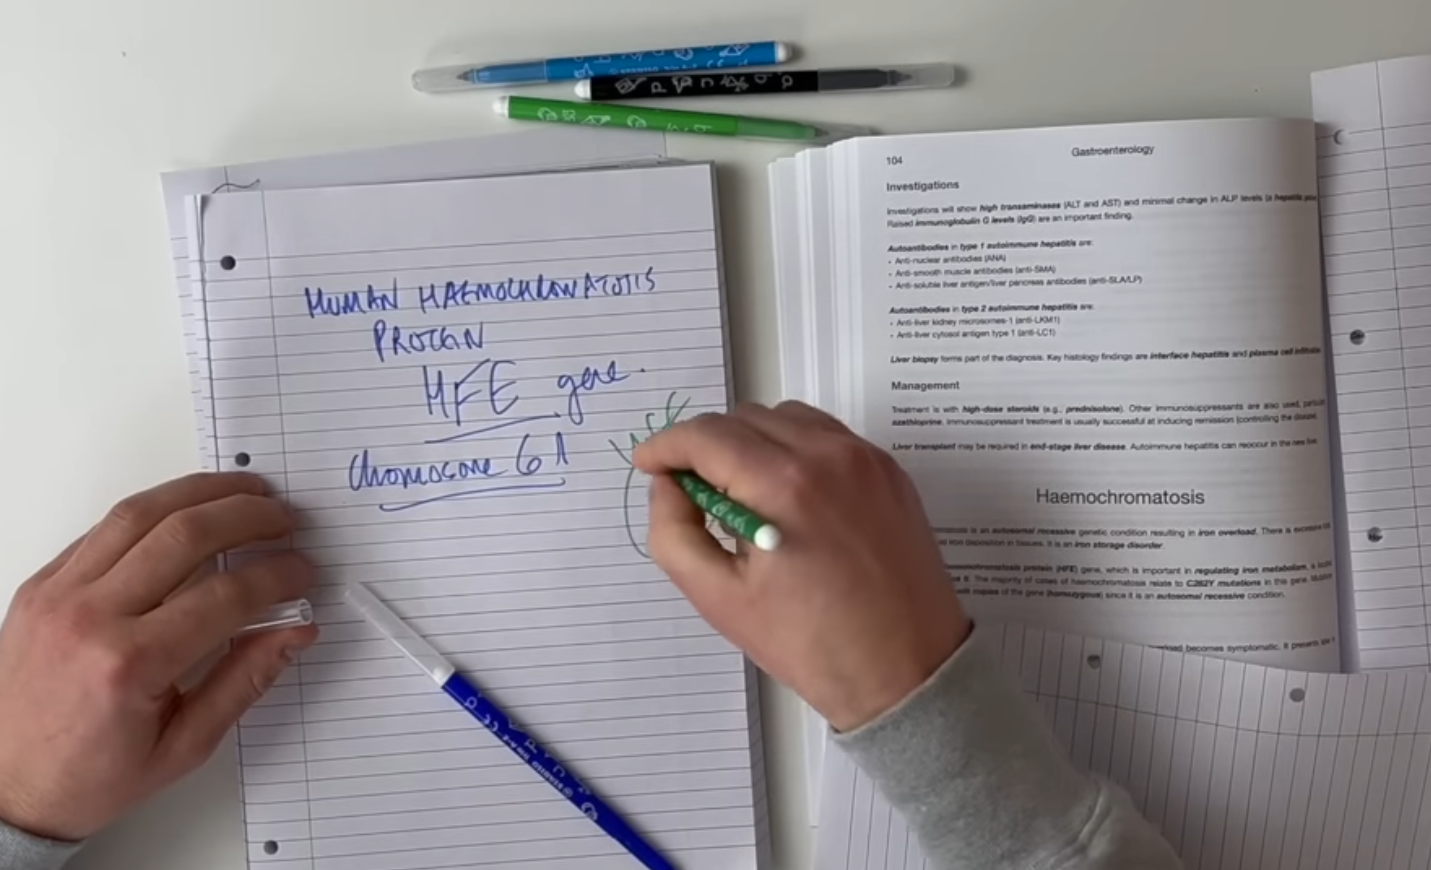 HUMAN HAEMOCHROMATOSIS
PROTEIN
HFE gene.
Chromosome 6
104
Gastroenterology
Investigations
Investigations will show high transaminases (ALT and AST) and minimal change in ALP levels (a hepatitic
Raised immunoglobulin G levels (IgG) are an important finding.
Autoantibodies in type 1 autoimmune hepatitis are:
• Anti-nuclear antibodies (ANA)
• Anti-smooth muscle antibodies (anti-SMA)
• Anti-soluble liver antigen/liver pancreas antibodies (anti-SLA/LP)
Autoantibodies in type 2 autoimmune hepatitis are:
• Anti-liver kidney microsomes-1 (anti-LKM1)
• Anti-liver cytosol antigen type 1 (anti-LC1)
Liver biopsy forms part of the diagnosis. Key histology findings are interface hepatitis and plasma cell
Management
Treatment is with high-dose steroids (e.g., prednisolone). Other immunosuppressants are also used,
azathioprine. Immunosuppressant treatment is usually successful at inducing remission (controlling the disease
Liver transplant may be required in end-stage liver disease. Autoimmune hepatitis can reoccur in the new
Haemochromatosis
is an autosomal recessive genetic condition resulting in iron overload. There is
iron deposition in tissues. It is an iron storage disorder.
protein (HFE) gene, which is important in regulating iron metabolism, is
6. The majority of cases of haemochromatosis relate to C282Y mutations in this gene.
copies of the gene (homozygous) since it is an autosomal recessive condition.
becomes symptomatic. It presents